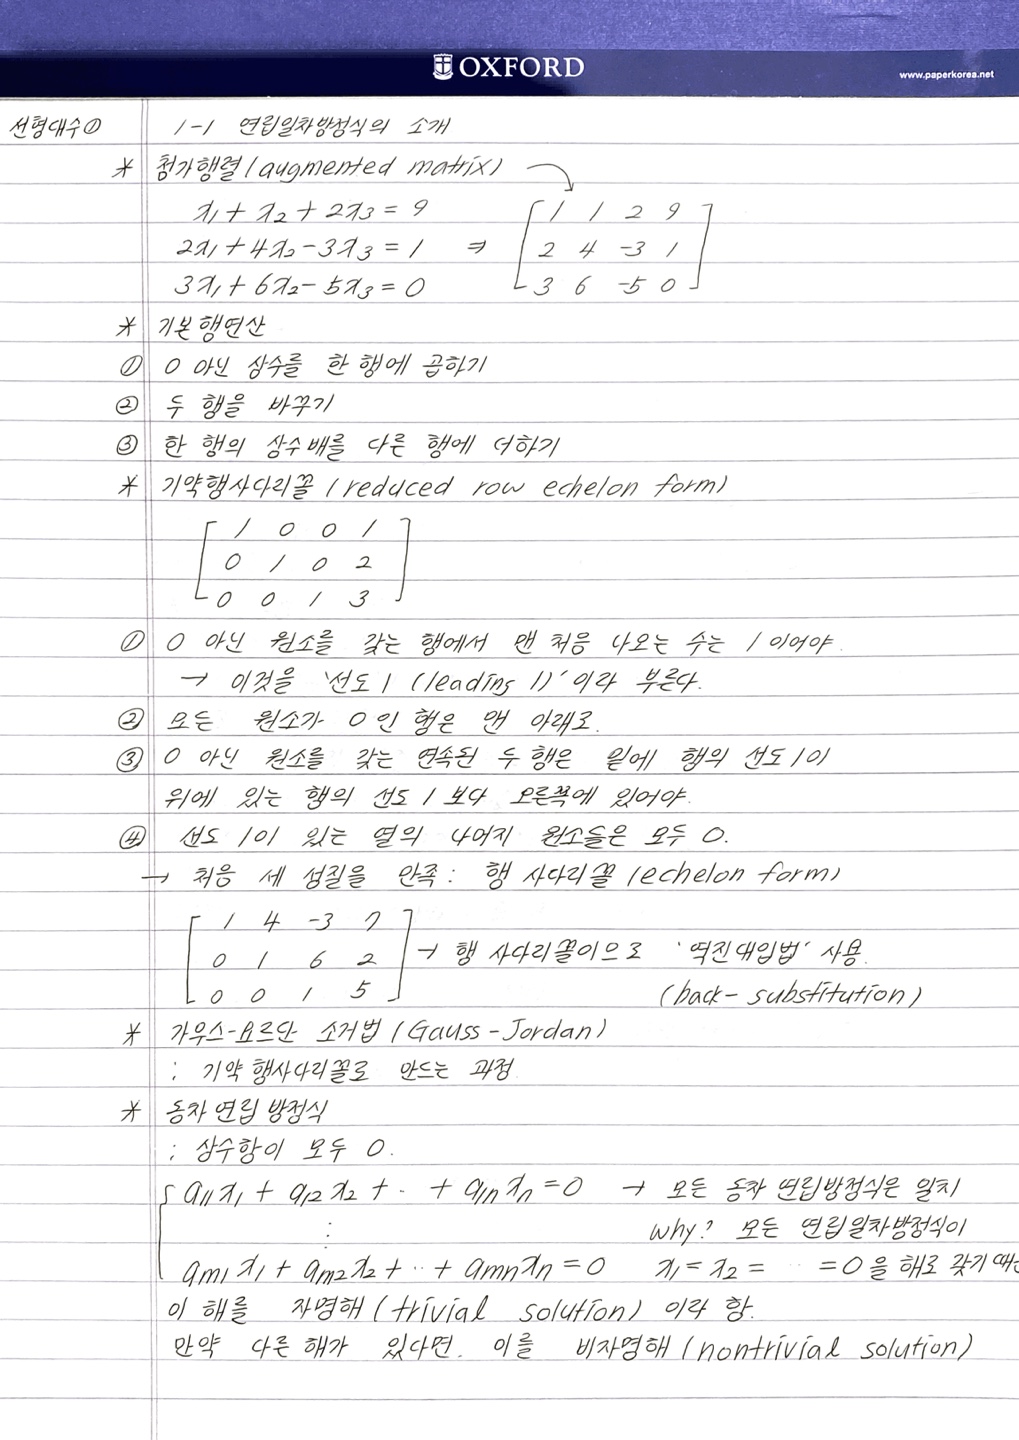 OXFORD
www.paperkorea.net
선형대수① 1-1 연립일차방정식의 소개
* 첨가행렬(augmented matrix)
x₁ + x₂ + 2x₃ = 9
2x₁ + 4x₂ - 3x₃ = 1 ⇒
3x₁ + 6x₂ - 5x₃ = 0
1 1 2 9
2 4 -3 1
3 6 -5 0
* 기본행연산
① 0 아닌 상수를 한 행에 곱하기
② 두 행을 바꾸기
③ 한 행의 상수배를 다른 행에 더하기
* 기약행사다리꼴(reduced row echelon form)
1 0 0 1
0 1 0 2
0 0 1 3
① 0 아닌 원소를 갖는 행에서 맨 처음 나오는 수는 1이어야.
→ 이것을 '선도1 (leading 1)'이라 부른다.
② 모든 원소가 0인 행은 맨 아래로.
③ 0 아닌 원소를 갖는 연속된 두 행은 밑에 행의 선도1이
위에 있는 행의 선도1보다 오른쪽에 있어야.
④ 선도1이 있는 열의 나머지 원소들은 모두 0.
→ 처음 세 성질을 만족 : 행 사다리꼴(echelon form)
1 4 -3 7
0 1 6 2
0 0 1 5
→ 행 사다리꼴이으로 '역진대입법' 사용.
(back-substitution)
* 가우스-요르단 소거법(Gauss-Jordan)
: 기약행사다리꼴로 만드는 과정
* 동차 연립 방정식
: 상수항이 모두 0.
a₁₁x₁ + a₁₂x₂ + ·· + a₁ₙxₙ = 0 → 모든 동차 연립방정식은 일치
⋮ why? 모든 연립일차방정식이
aₘ₁x₁ + aₘ₂x₂ + ·· + aₘₙxₙ = 0 x₁ = x₂ = ·· = 0을 해로 갖기
이 해를 자명해(trivial solution)이라 함.
만약 다른 해가 있다면. 이를 비자명해(nontrivial solution)